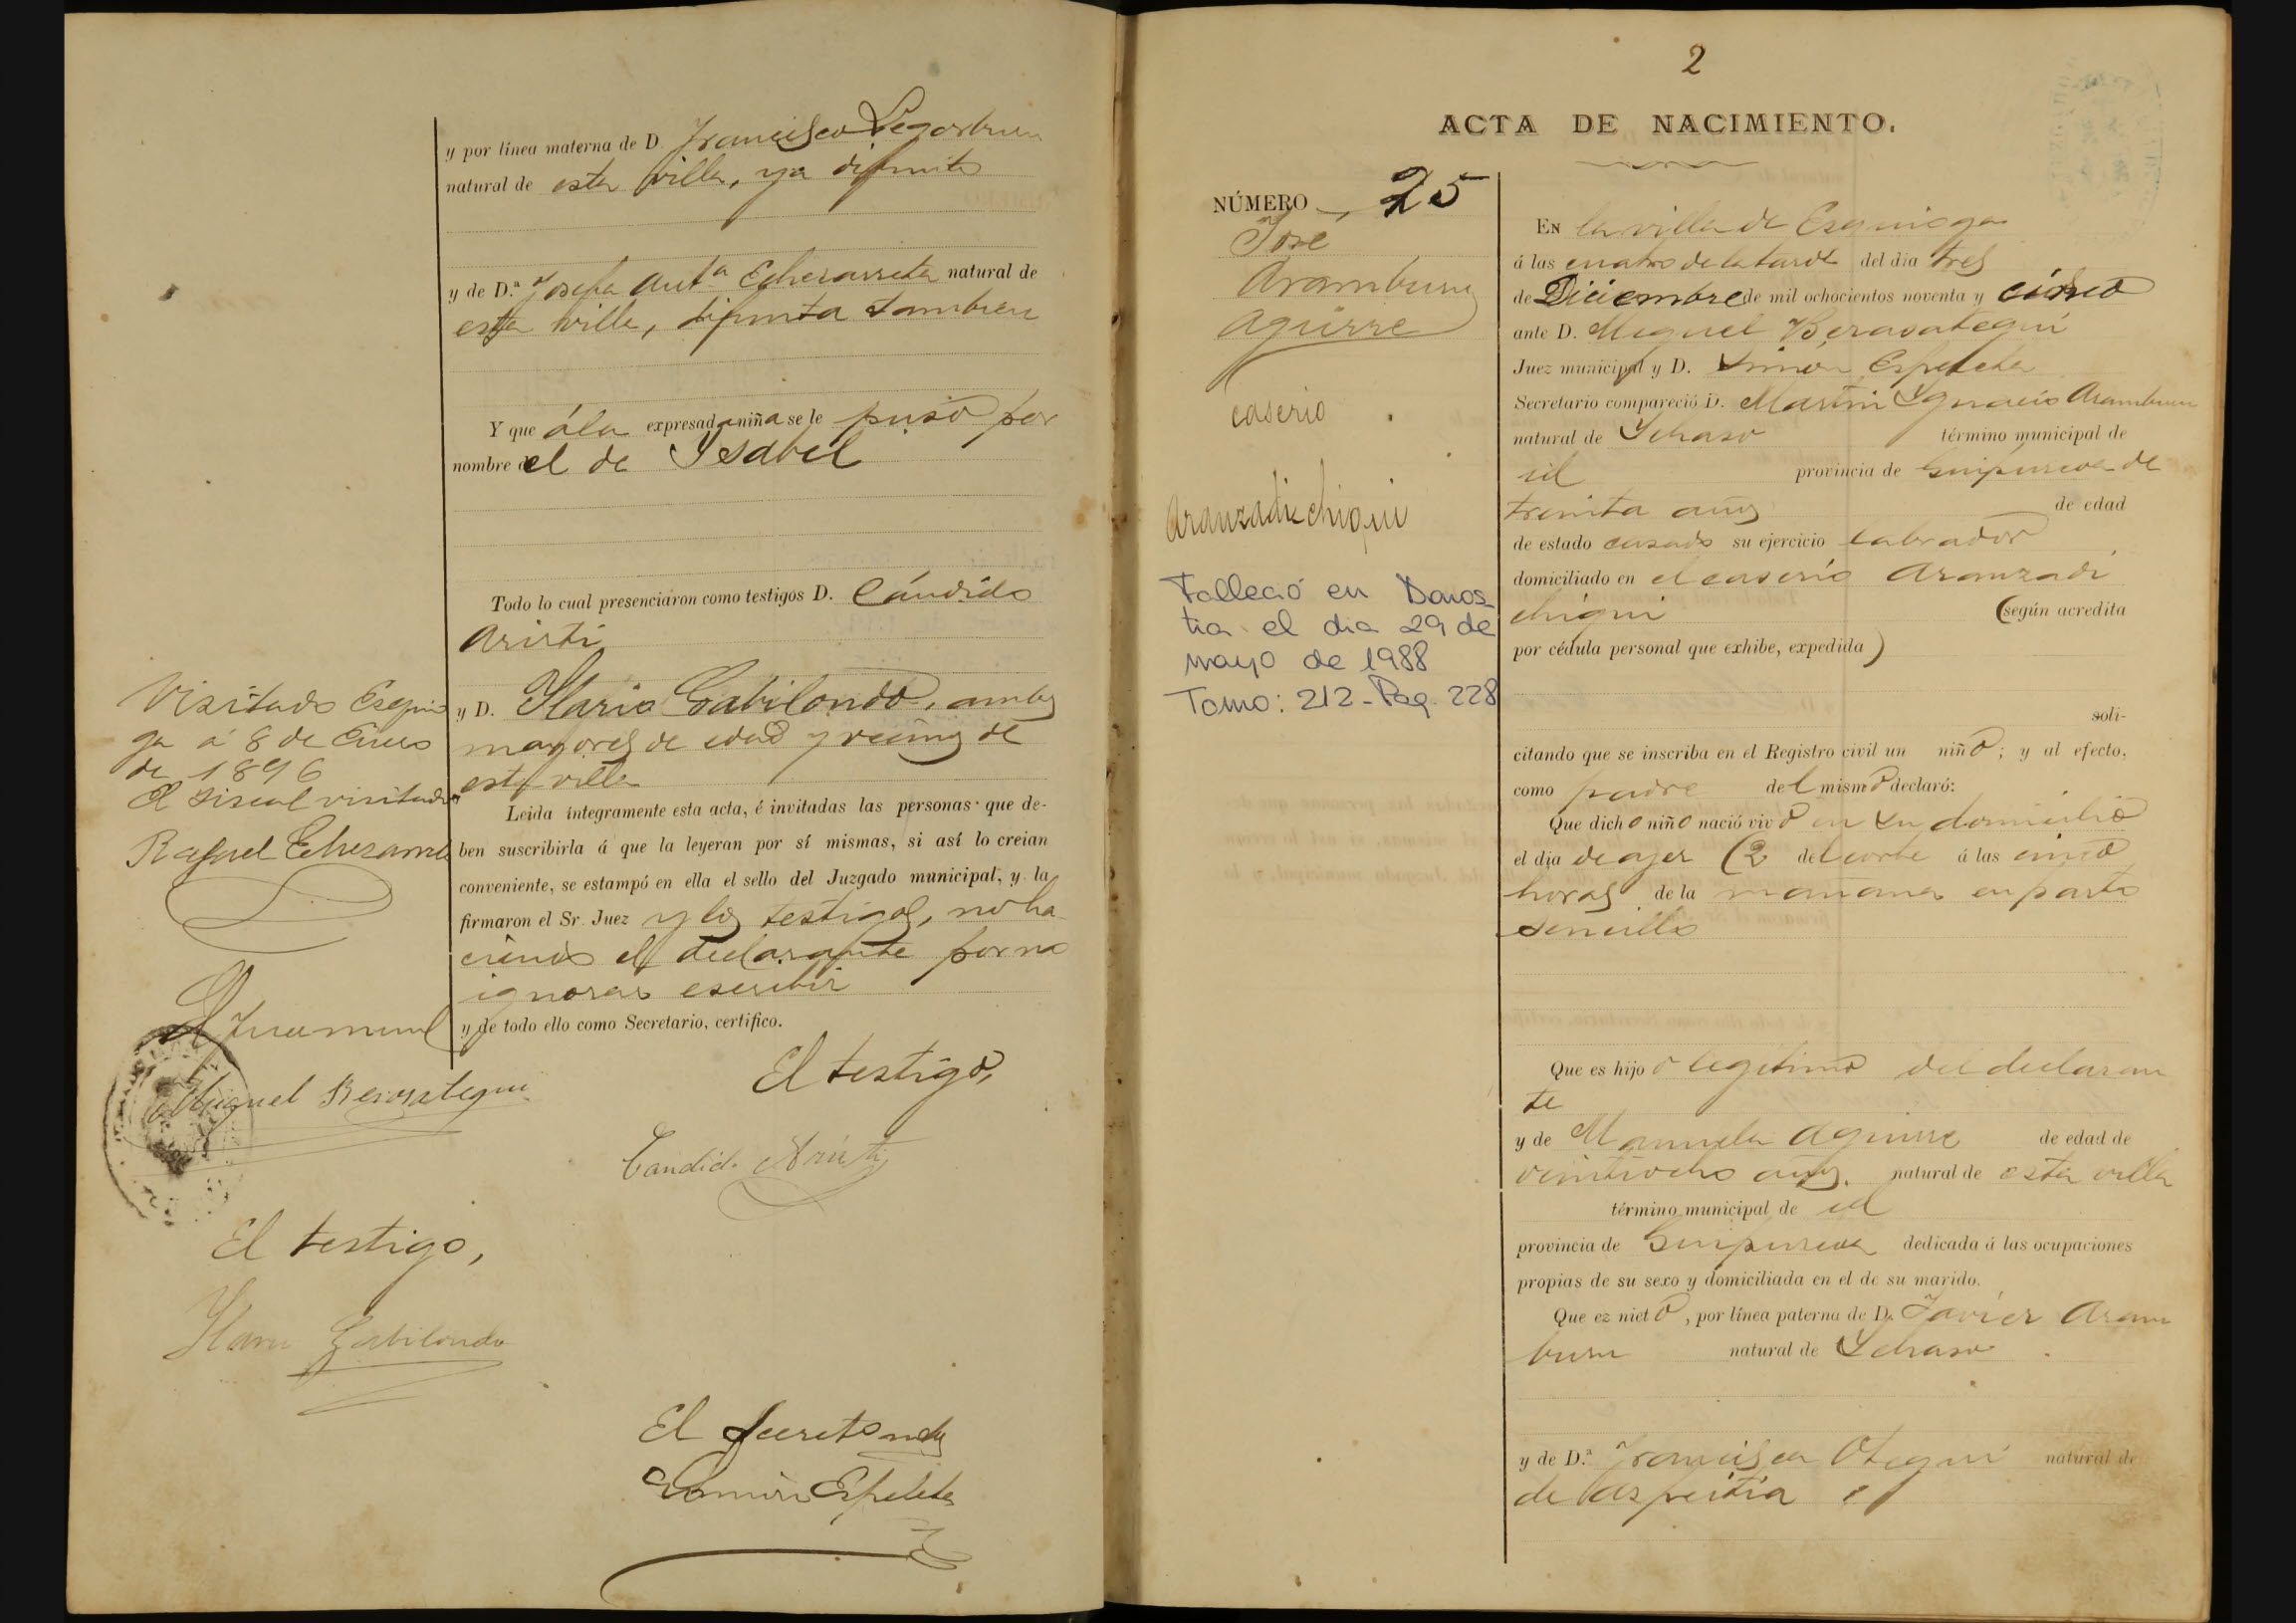 y por línea materna de D. Francisco Legorburu
natural de esta villa, ya difunto
y de D.ª Josefa Antª Echezarreta natural de
esta villa, difunta tambien
Y que á la expresada niña se le puso por
nombre el de Ysabel
Todo lo cual presenciaron como testigos D. Cándido
Aristi
y D. Ylario Gabilondo, ambos
mayores de edad y vecinos de
esta villa
Leida íntegramente esta acta, é invitadas las personas que de-
ben suscribirla á que la leyeran por sí mismas, si así lo creian
conveniente, se estampó en ella el sello del Juzgado municipal, y la
firmaron el Sr. Juez y los testigos, no ha
ciendo el declarante por no
ignorar escribir
y de todo ello como Secretario, certifico.
Visitado Esquio
ga á 8 de Enero
de 1896
El Fiscal visitador
Rafael Echezarre
El Juez
Miguel Berasategui
El testigo,
Candido Aristi
El testigo,
Ylario Gabilondo
El Secretario
Simon Espeleta
2
ACTA DE NACIMIENTO.
NÚMERO 25
José
Aramburu
Aguirre
caserio
Aranzadi chiqui
Falleció en Donos-
tia el dia 29 de
mayo de 1988
Tomo: 212 - Pag. 228
EN la villa de Esquioga
á las cuatro de la tarde del dia tres
de Diciembre de mil ochocientos noventa y cinco
ante D. Miguel Berasategui
Juez municipal y D. Simon Espeleta
Secretario compareció D. Martin Ygnacio Aramburu
natural de Ychaso término municipal de
id provincia de Guipúzcoa de
treinta años de edad
de estado casado su ejercicio labrador
domiciliado en el caserío Aranzadi
chiqui (según acredita
por cédula personal que exhibe, expedida)
soli-
citando que se inscriba en el Registro civil un niño; y al efecto,
como padre del mismo declaró:
Que dicho niño nació vivo en su domicilio
el dia de ayer (2 del corte á las cinco
horas de la mañana en parto
sencillo
Que es hijo legitimo del declaran
te
y de Manuela Aguirre de edad de
veintiocho años natural de esta villa
término municipal de id
provincia de Guipuzcoa dedicada á las ocupaciones
propias de su sexo y domiciliada en el de su marido.
Que ez nieto, por línea paterna de D. Javier Aram
buru natural de Ychaso
y de D.ª Francisca Otegui natural de
de Azpeitia